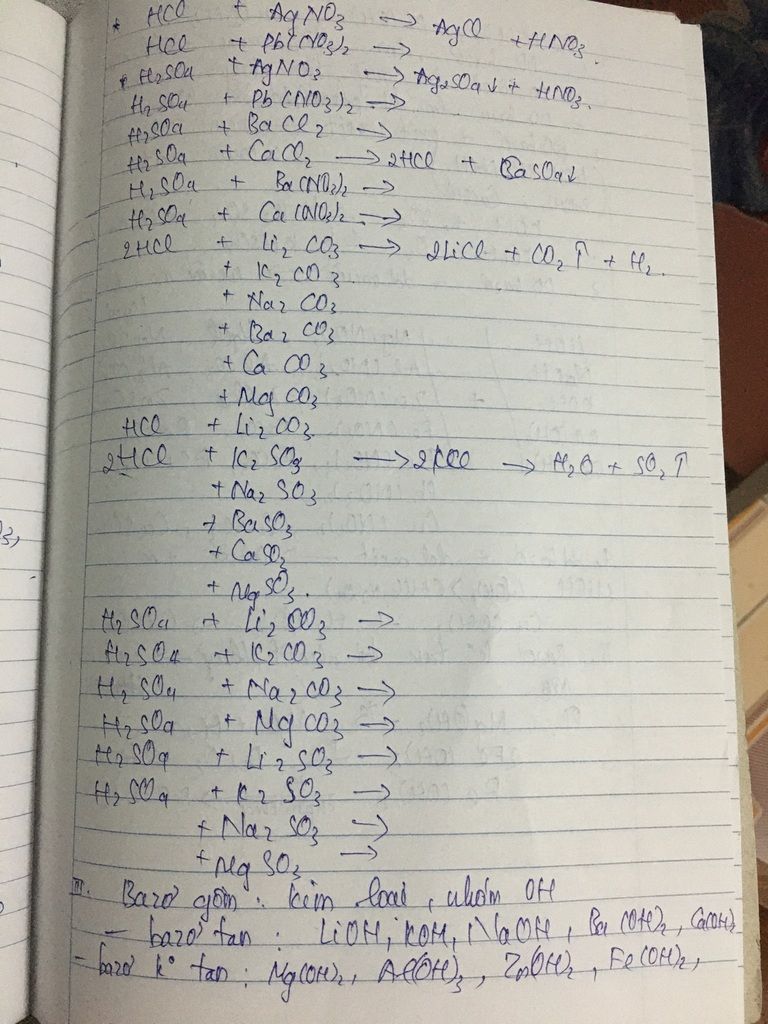 * HCl + AgNO3 → AgCl + HNO3.
HCl + Pb(NO3)2 →
* H2SO4 + AgNO3 → Ag2SO4↓ + HNO3.
H2SO4 + Pb(NO3)2 →
H2SO4 + BaCl2 →
H2SO4 + CaCl2 → 2HCl + BaSO4↓
H2SO4 + Ba(NO3)2 →
H2SO4 + Ca(NO3)2 →
2HCl + Li2CO3 → 2LiCl + CO2↑ + H2.
+ K2CO3
+ Na2CO3
+ Ba2CO3
+ CaCO3
+ MgCO3
HCl + Li2CO3
2HCl + K2SO3 → 2KCl → H2O + SO2↑
+ Na2SO3
+ BaSO3
+ CaSO3
+ MgSO3.
H2SO4 + Li2CO3 →
H2SO4 + K2CO3 →
H2SO4 + Na2CO3 →
H2SO4 + MgCO3 →
H2SO4 + Li2SO3 →
H2SO4 + K2SO3 →
+ Na2SO3 →
+ MgSO3 →
III. Bazơ gồm: kim loại, nhóm OH
- bazơ tan: LiOH, KOH, NaOH, Ba(OH)2, Ca(OH)2
- bazơ k° tan: Mg(OH)2, Al(OH)3, Zn(OH)2, Fe(OH)2,